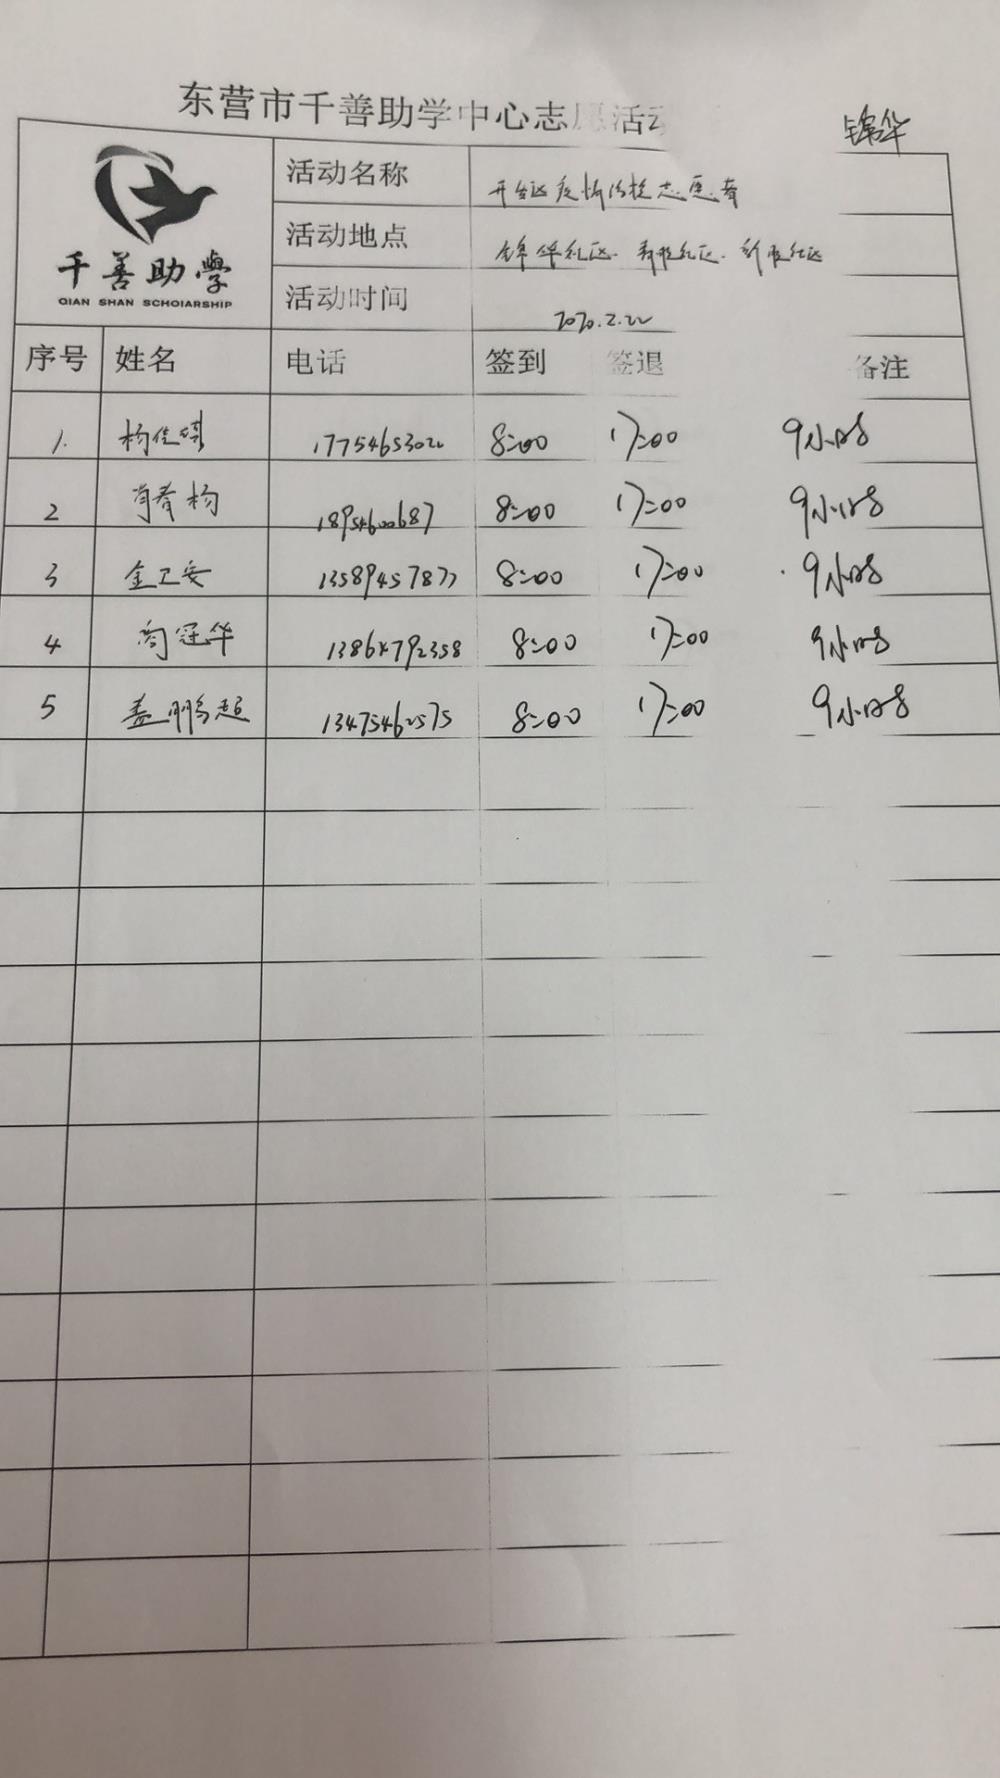 东营市千善助学中心志愿活动
锦华
千善助學
QIAN SHAN SCHOIARSHIP
活动名称 开发区疫情防控志愿者
活动地点 锦华社区. 社区. 社区
活动时间 2020.2.22
序号 姓名 电话 签到 签退 备注
1. 杨佳 17754653022 8:00 17:00 9小时
2 肖春杨 18954600687 8:00 17:00 9小时
3 金卫安 13589457877 8:00 17:00 9小时
4 尚冠华 13864792358 8:00 17:00 9小时
5 盖鹏超 13475462575 8:00 17:00 9小时